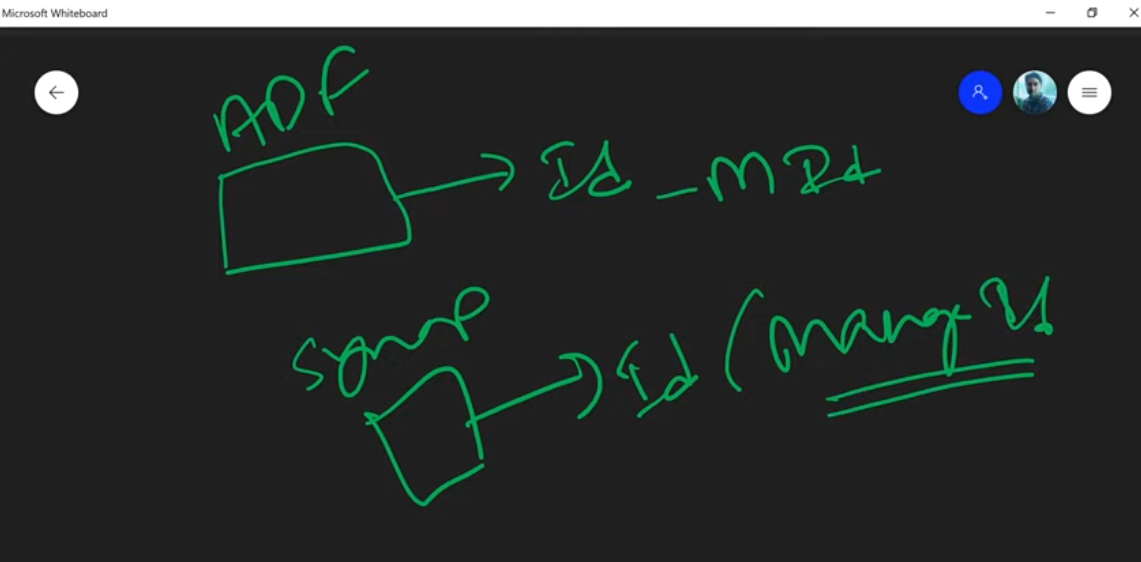 Microsoft Whiteboard
ADF
Id - M
Synap
Id (Mange Id